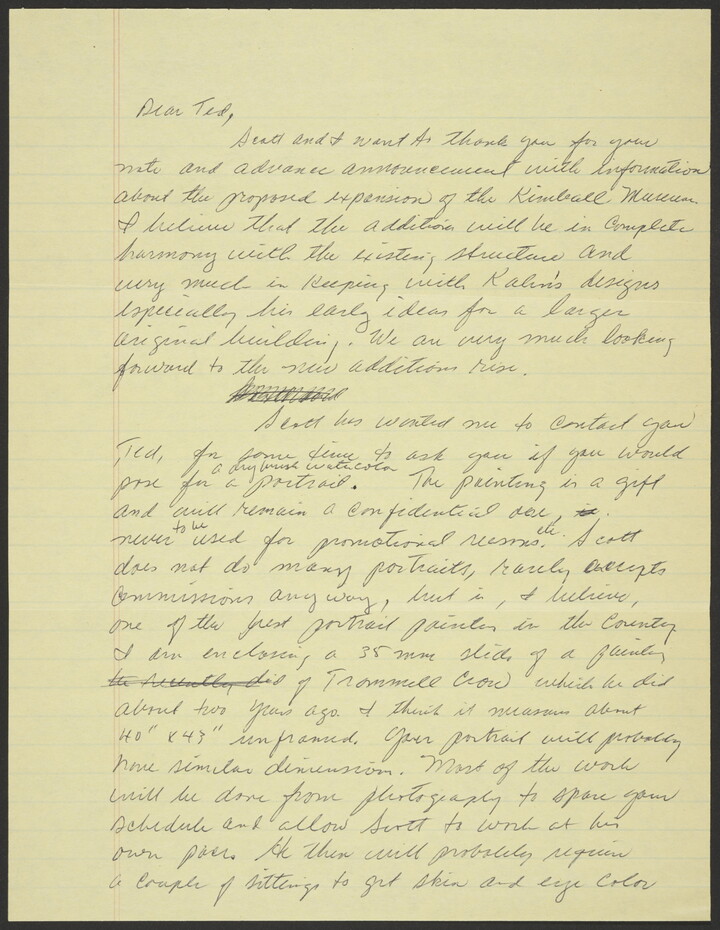 Dear Ted,
Scott and I want to thank you for your
note and advance announcement with information
about the proposed expansion of the Kimball Museum.
I believe that the addition will be in complete
harmony with the existing structure and
very much in keeping with Kahn's designs
especially his early ideas for a larger
original building. We are very much looking
forward to the new additions rise.
Scott has wanted me to contact you
Ted, for some time to ask you if you would
a drybrush watercolor
pose for a portrait. The painting is a gift
and will remain a confidential one, is
never to be used for promotional reasons etc. Scott
does not do many portraits, rarely accepts
commissions anyway, but is, I believe,
one of the best portrait painters in the country.
I am enclosing a 35 mm slide of a painting
he recently did of Trammell Crow which he did
about two years ago. I think it measures about
40" x 43" unframed. Your portrait will probably
have similar dimension. Most of the work
will be done from photography to spare your
schedule and allow Scott to work at his
own pace. He then will probably require
a couple of sittings to get skin and eye color